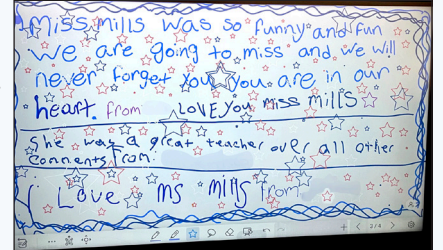 Miss mills was so funny and fun
we are going to miss and we will
never forget you you are in our
heart. from LOVE you miss mills
She was a great teacher over all other
comments from.
i Love ms mills from
2/4